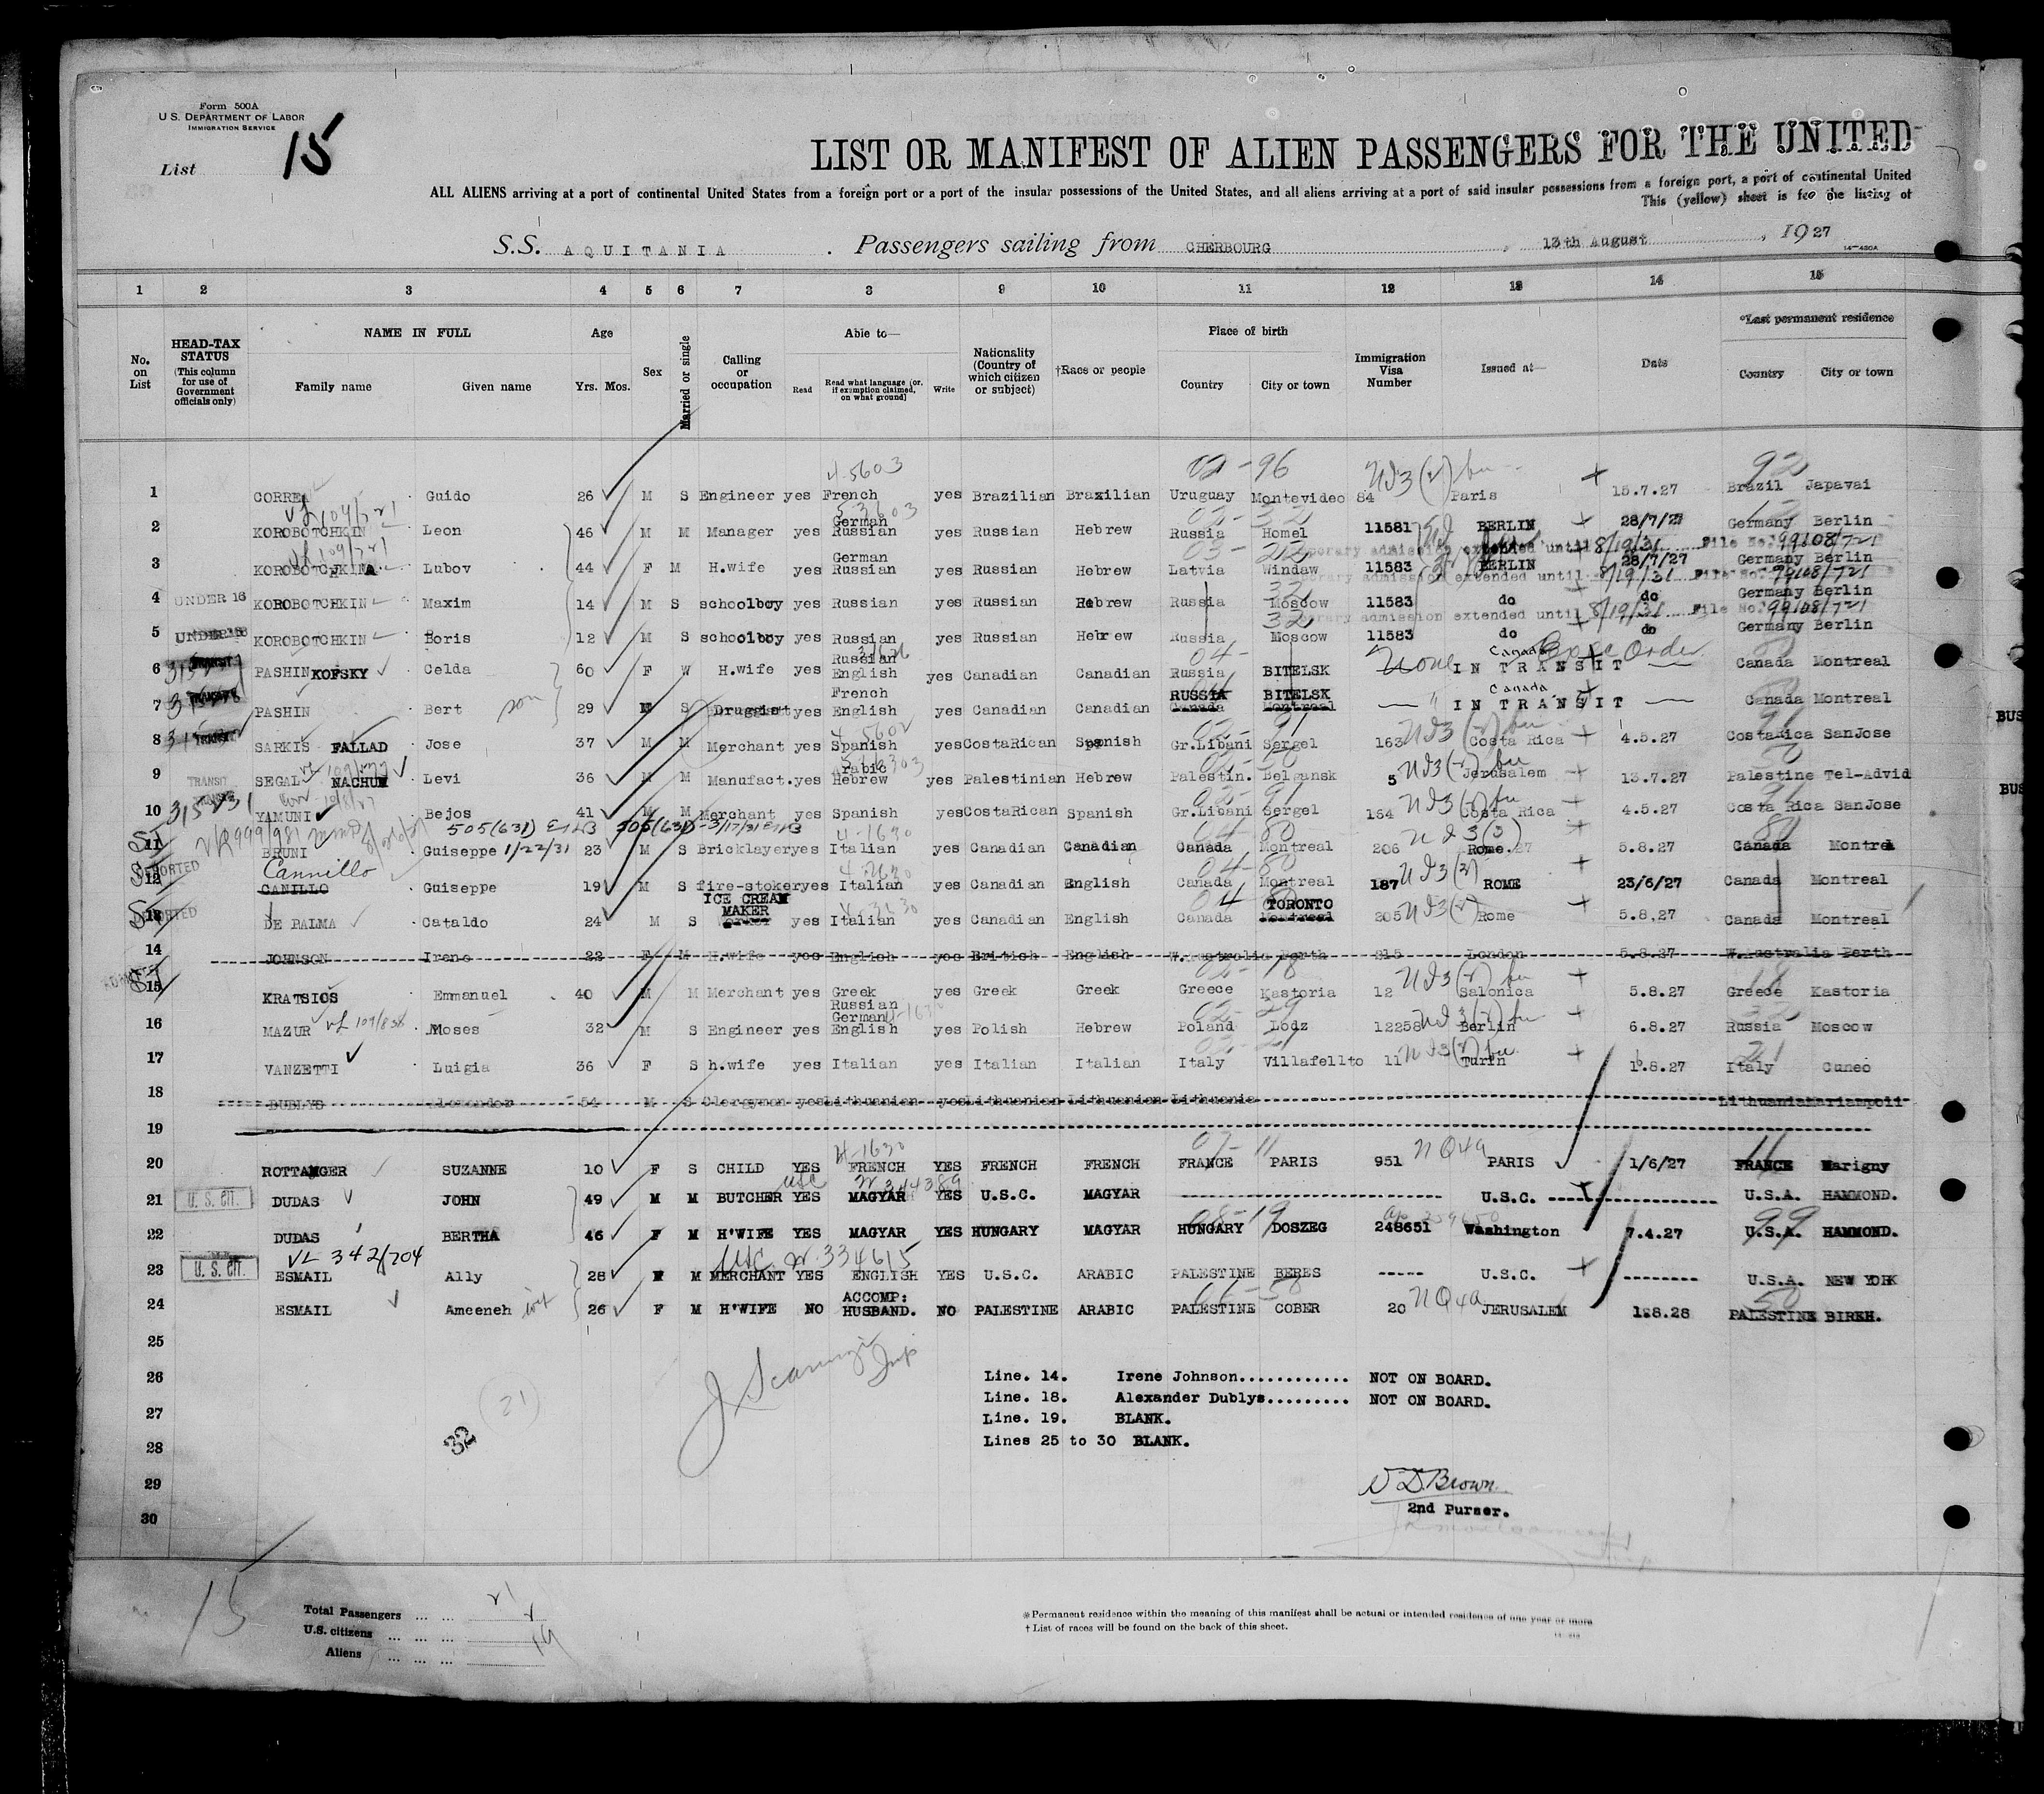 Form 500A
U.S. DEPARTMENT OF LABOR
IMMIGRATION SERVICE
List 15
LIST OR MANIFEST OF ALIEN PASSENGERS FOR THE UNITED
ALL ALIENS arriving at a port of continental United States from a foreign port or a port of the insular possessions of the United States, and all aliens arriving at a port of said insular possessions from a foreign port, a port of continental United
This (yellow) sheet is for the listing of
S.S. AQUITANIA . Passengers sailing from CHERBOURG , 13th August , 1927
1 2 3 4 5 6 7 8 9 10 11 12 13 14 15
No. on List
HEAD-TAX STATUS (This column for use of Government officials only)
NAME IN FULL Family name Given name
Age Yrs. Mos.
Sex
Married or single
Calling or occupation
Able to— Read Read what language [or, if exemption claimed, on what ground] Write
Nationality (Country of which citizen or subject)
†Race or people
Place of birth Country City or town
Immigration Visa Number
Issued at—
Date
*Last permanent residence Country City or town
4-5603 02-96 92
1 CORREA Guido 26 M S Engineer yes French yes Brazilian Brazilian Uruguay Montevideo 84 Paris 15.7.27 Brazil Japavai
German
2 KOROBOTCHKIN Leon 46 M M Manager yes Russian yes Russian Hebrew Russia Homel 11581 BERLIN 28/7/27 Germany Berlin
admission extended until 8/19/31 File No. 99108/721
German
3 KOROBOTCHKINA Lubov 44 F M H.wife yes Russian yes Russian Hebrew Latvia Windaw 11583 BERLIN 28/7/27 Germany Berlin
admission extended until 8/19/31 File No. 99108/721
4 UNDER 16 KOROBOTCHKIN Maxim 14 M S schoolboy yes Russian yes Russian Hebrew Russia Moscow 11583 do do Germany Berlin
admission extended until 8/19/31 File No. 99108/721
5 UNDER 16 KOROBOTCHKIN Boris 12 M S schoolboy yes Russian yes Russian Hebrew Russia Moscow 11583 do do Germany Berlin
Russian
6 PASHINKOFSKY Celda 60 F W H.wife yes English yes Canadian Canadian Russia BITELSK None Canada IN TRANSIT Canada Montreal
French RUSSIA BITELSK Canada
7 PASHIN Bert son 29 M S Druggist yes English yes Canadian Canadian Canada Montreal IN TRANSIT Canada Montreal
8 SARKIS FALLAD Jose 37 M M Merchant yes Spanish yes CostaRican Spanish Gr.Libani Sergel 163 Costa Rica 4.5.27 Costarica SanJose
Arabic
9 TRANSIT SEGAL NACHUM Levi 36 M M Manufact. yes Hebrew yes Palestinian Hebrew Palestin. Belgansk 5 Jerusalem 13.7.27 Palestine Tel-Advid
10 YAMUNI Bejos 41 M M Merchant yes Spanish yes CostaRican Spanish Gr.Libani Sergel 164 Costa Rica 4.5.27 Costa Rica SanJose
11 BRUNI Guiseppe 1/22/31 23 M S Bricklayer yes Italian yes Canadian Canadian Canada Montreal 206 Rome 5.8.27 Canada Montrea
Cannillo
12 CANILLO Guiseppe 19 M S fire-stoker yes Italian yes Canadian English Canada Montreal 187 ROME 23/6/27 Canada Montreal
ICE CREAM MAKER TORONTO
13 DE PALMA Cataldo 24 M S yes Italian yes Canadian English Canada Montreal 205 Rome 5.8.27 Canada Montreal
14 JOHNSON Irene 22 F M H.wife yes English yes British English W.Australia Perth 215 London 5.8.27 W.Australia Perth
15 KRATSIOS Emmanuel 40 M M Merchant yes Greek yes Greek Greek Greece Kastoria 12 Salonica 5.8.27 Greece Kastoria
Russian
German
16 MAZUR Moses 32 M S Engineer yes English yes Polish Hebrew Poland Lodz 12258 Berlin 6.8.27 Russia Moscow
17 VANZETTI Luigia 36 F S h.wife yes Italian yes Italian Italian Italy Villafellto 11 Turin 1.8.27 Italy Cuneo
18 DUBLYS Alexander 54 M S Clergyman yes Lithuanian yes Lithuanian Lithuanian Lithuania Lithuania Mariampoli
19
20 ROTTANGER SUZANNE 10 F S CHILD YES FRENCH YES FRENCH FRENCH FRANCE PARIS 951 PARIS 1/6/27 FRANCE Marigny
21 U.S. CIT. DUDAS JOHN 49 M M BUTCHER YES MAGYAR YES U.S.C. MAGYAR U.S.C. U.S.A. HAMMOND.
22 DUDAS BERTHA 46 F M H'WIFE YES MAGYAR YES HUNGARY MAGYAR HUNGARY DOSZEG 248651 Washington 7.4.27 U.S.A. HAMMOND.
VL 342/704 USC 334615
23 U.S. CIT. ESMAIL Ally 28 M M MERCHANT YES ENGLISH YES U.S.C. ARABIC PALESTINE BERES ----- U.S.C. -------- U.S.A. NEW YORK
ACCOMP:
24 ESMAIL Ameeneh wife 26 F M H'WIFE NO HUSBAND. NO PALESTINE ARABIC PALESTINE COBER 20 JERUSALEM 1.8.28 PALESTINE BIREH.
25
26 Line. 14. Irene Johnson............ NOT ON BOARD.
Line. 18. Alexander Dublys......... NOT ON BOARD.
27 Line. 19. BLANK.
28 Lines 25 to 30 BLANK.
21
32
29 D Brown
30 2nd Purser.
15
Total Passengers ... ... 21
U.S. citizens ... ... ... 2
Aliens ... ... ... 19
*Permanent residence within the meaning of this manifest shall be actual or intended residence of one year or more
† List of races will be found on the back of this sheet.
BUS
BUS